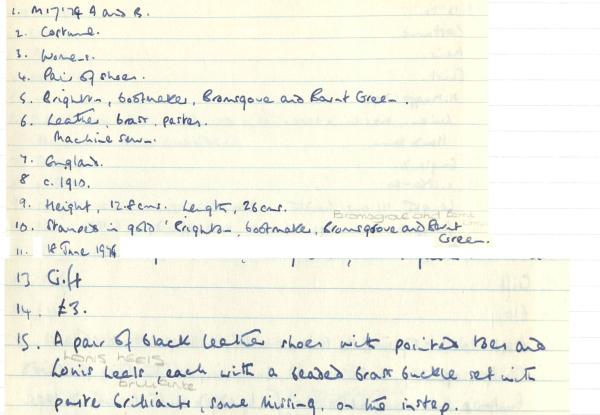 1. M17'74 A and B.
2. Costume.
3. Womens.
4. Pair of shoes.
5. Brighton, bootmaker, Bromsgrove and Barnt Green.
6. Leather, brass, pastes.
Machine sewn.
7. England.
8 c. 1910.
9. Height, 12.8 cms. Length, 26 cms.
Bromsgrove and Barnt
10. Stamped in gold 'Brighton, bootmaker, Bromsgrove and Barnt
Green.
11. 18 June 1974
13 Gift
14. £3.
15. A pair of black leather shoes with pointed toes and
LOUIS HEELS
Louis heels, each with a beaded brass buckle set with
brilliants
paste brilliants, some missing, on the instep.